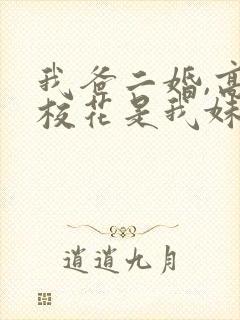 我爸二婚,高
校花是我妹
逍遥九月